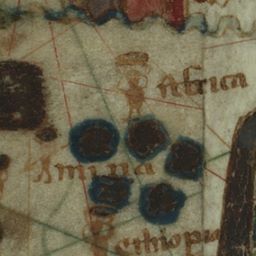 Africa
mina
ethiopia